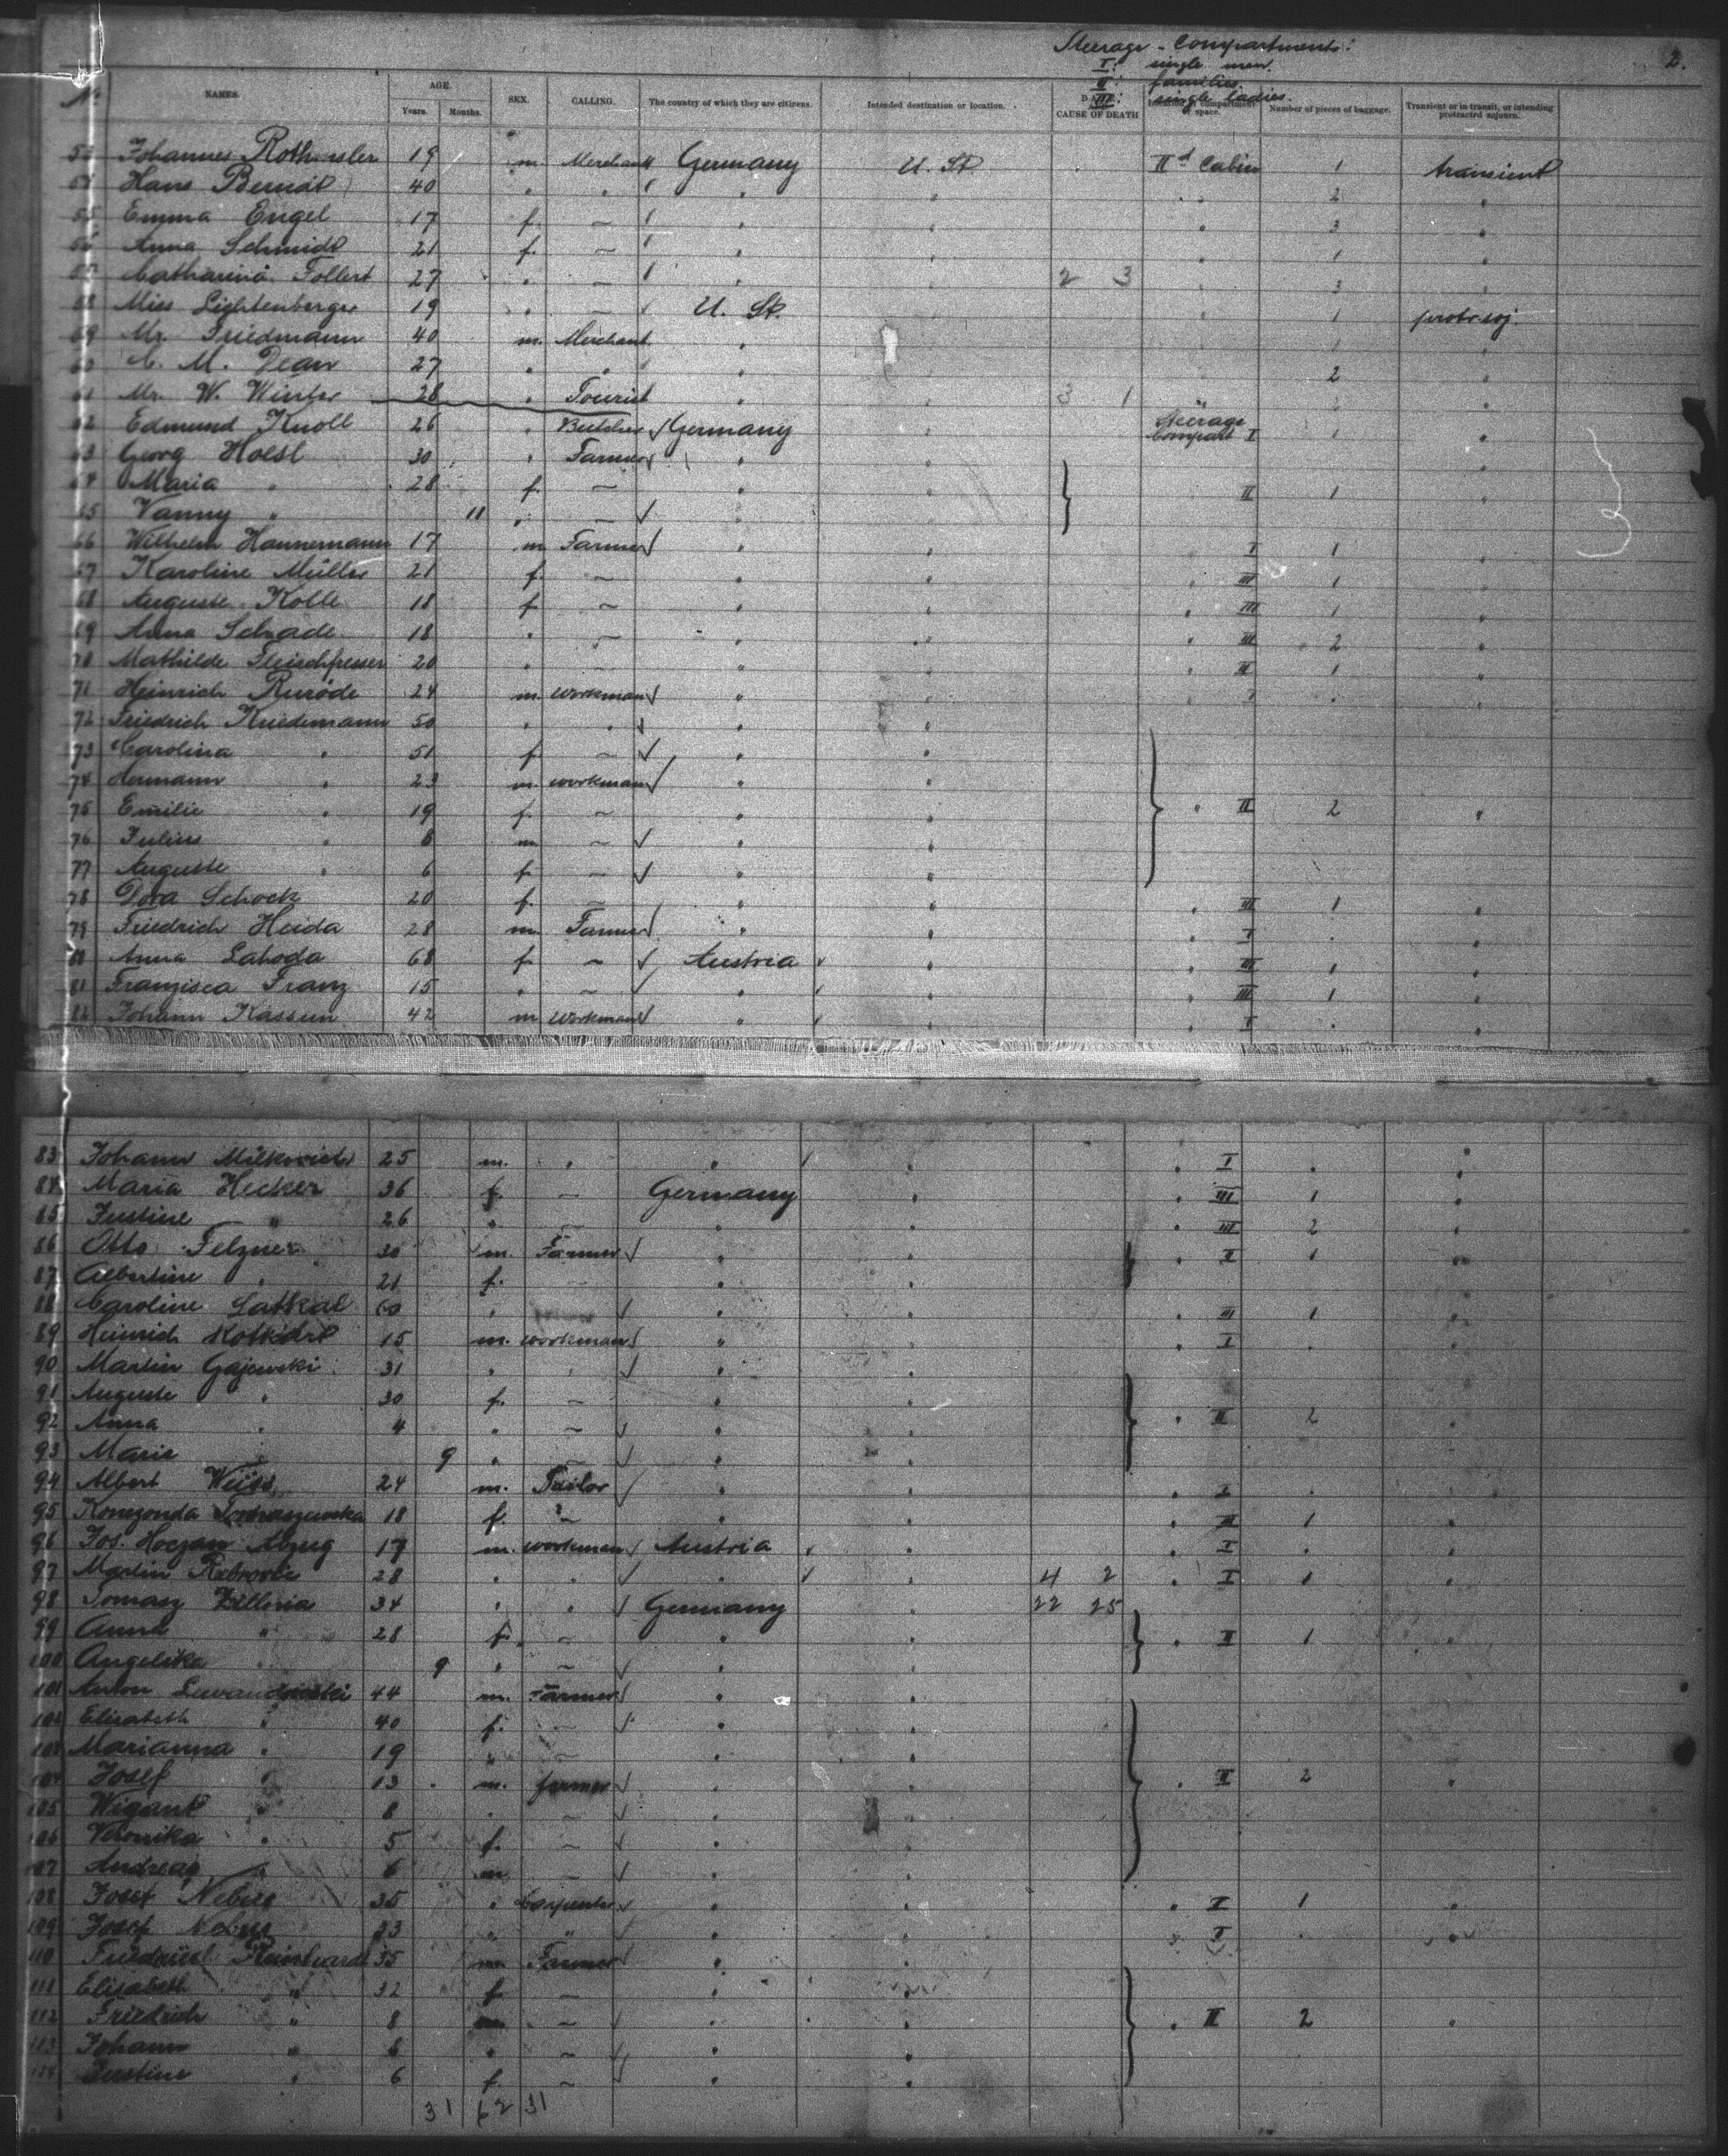 Steerage - Compartments: 2.
I: single men.
II: families
III: single ladies.
No. NAMES. AGE. Years. Months. SEX. CALLING. The country of which they are citizens. Intended destination or location. CAUSE OF DEATH of space. Number of pieces of baggage. Transient or in transit, or intending protracted sojourn.
53 Johannes 19 m. Merchant Germany U. St. IId Cabin 1 transient
54 Hans Berndt 40 " " " " " 2 "
55 Emma Engel 17 f. — " " " 3 "
56 Anna Schmidt 21 f. — " " " 1 "
57 Catharina Tollert 27 " — " " 2 3 " 3 "
58 Miss Lichtenberger 19 " — U. St. " " 1 protr. soj.
59 Mr. Friedmann 40 m. Merchant " " " 1 "
60 C. M. Dean 27 " " " " 2 "
61 Mr. W. Winter 28 " Tourist " " 3 1 " 2 "
62 Edmund Knoll 26 " Butcher Germany " Steerage Compart I 1 "
63 Georg Hoesl 30 " Farmer " " "
64 Maria " 28 f. — " " II 1 "
65 Vanny " 11 " — " "
66 Wilhelm Hannemann 17 m Farmer " " I 1 "
67 Karoline Müller 21 f. — " " " III 1 "
68 Auguste Kolle 18 f — " " " III 1 "
69 Anna Schade 18 " — " " " III 2 "
70 Mathilde Fleischfresser 20 " — " " " II 1 "
71 Heinrich Ruröde 24 m. workman " " " I . "
72 Friedrich Kriedemann 50 " " " "
73 Carolina " 51 f — " "
74 Hermann " 23 m. workman " "
75 Emilie " 19 f. — " " " II 2 "
76 Julius " 8 m — " "
77 Auguste " 6 f — " "
78 Dora Schock 20 f. — " " " III 1 "
79 Friedrich Heida 28 m. Farmer " " " I . "
80 Anna Lahoda 68 f — Austria " " III 1 "
81 Franzisca Franz 15 " — " " " III 1 "
82 Johann Kassun 42 m workman " " " I . "
83 Johann Milkovich 25 m. " " " " I . "
84 Maria Hecker 36 f. — Germany " " III 1 "
85 Justine " 26 " — " " " III 2 "
86 Otto Felzner 30 m. Farmer " " " II 1 "
87 Albertine " 21 f. — " "
88 Caroline Latkal 60 " " " " III 1 "
89 Heinrich 15 m. workman " " " I . "
90 Martin Gajewski 31 " " " "
91 Auguste " 30 f. — " "
92 Anna " 4 " — " " " II 2 "
93 Marie " 9 " — " "
94 Albert Weiss 24 m. Tailor " " " I . "
95 Konegonda Tomaszewska 18 f. — " " " III 1 "
96 Jos. 17 m. workman Austria " " I . "
97 Martin 28 " " " " 4 2 " I 1 "
98 Tomasz 34 " " Germany " 22 25
99 Anna " 28 f. — " " " II 1 "
100 Angelika " 9 " — " "
101 Anton Lewandowski 44 m. Farmer " "
102 Elisabeth " 40 f. — " "
103 Marianna " 19 " — " "
104 Josef " 13 m. farmer " " " II 2 "
105 Wigant " 8 " — " "
106 Veronika " 5 f. — " "
107 Andreas " 6 m — " "
108 Josef 35 " Carpenter " " " I 1 "
109 Josef 23 " " " " " I . "
110 Friedrich 35 m Farmer " "
111 Elisabeth " 32 f — " "
112 Friedrich " 8 m — " " " II 2 "
113 Johann " 8 " — " "
114 Justine " 6 f. — " "
31 62 31